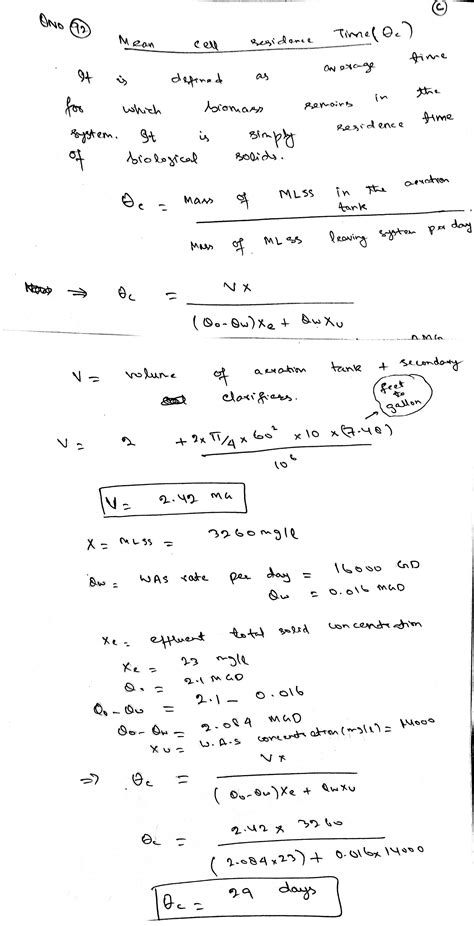 C
QNO 72
Mean cell residence Time (θc)
It is defined as average time
for which biomass remains in the
system. It is simply residence time
of biological solids.
θc = Mass of MLSS in the aeration tank
Mass of MLSS leaving system per day
⇒ θc = VX
(Qo-Qw)Xe + QwXu
V = volume of aeration tank + secondary
clarifiers.
feet to gallon
V = 2 + 2 x π/4 x 60² x 10 x (7.48)
10⁶
V = 2.42 MG
X = MLSS = 3260 mg/l
Qw = WAS rate per day = 16000 GD
Qw = 0.016 MGD
Xe = effluent total solid concentration
Xe = 23 mg/l
Qo = 2.1 MGD
Qo-Qw = 2.1 - 0.016
Qo-Qw = 2.084 MGD
Xu = W.A.S concentration (mg/l) = 14000
⇒ θc = VX
(Qo-Qw)Xe + QwXu
θc = 2.42 x 3260
(2.084x23) + 0.016x14000
θc = 29 days